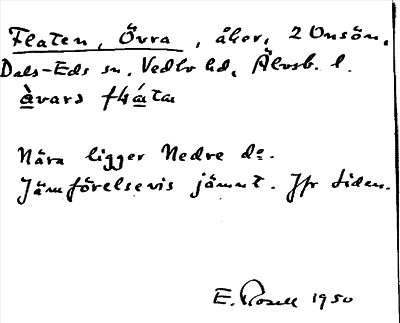 Flaten, Övra, åker, 2 Onsön,
Dals-Eds sn. Vedbo hd, Älvsb. l.
àvara flááta
Nära ligger Nedre do.
Jämförelsevis jämnt. Jfr sidan.
E. Rosell 1950